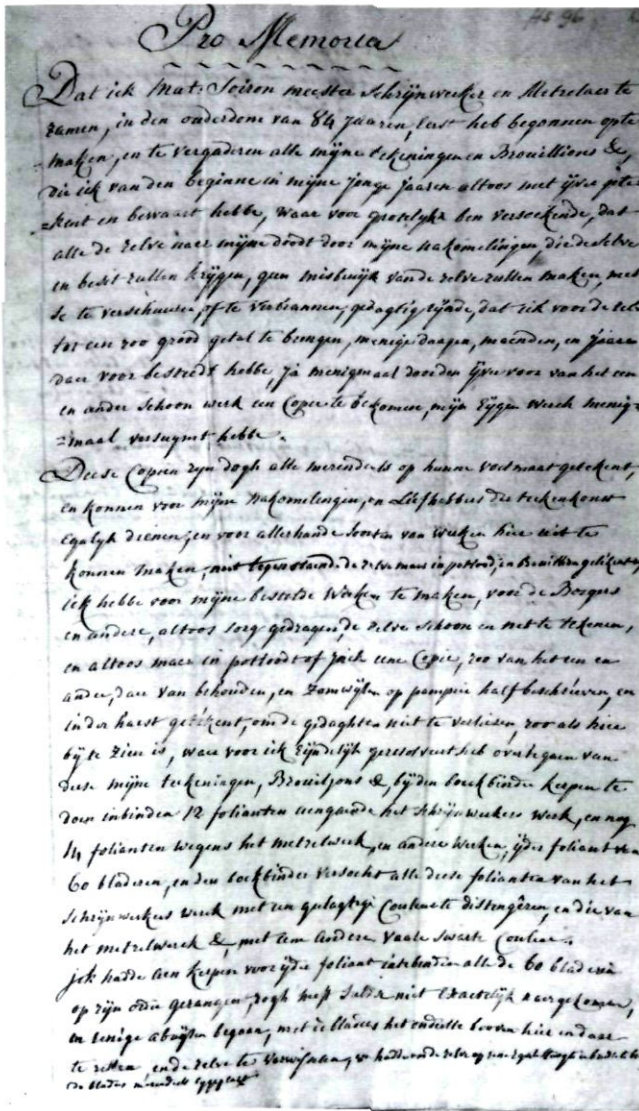 Hs 96
Pro Memoria
Dat ick Mat: Soiron meester Schrijnwerker en Metzelaer te
zamen, in den ouderdome van 84 jaaren, eerst heb begonnen op te
maken, en te vergaderen alle mijne tekeningen en Brouillions &,
die ick van den beginne in mijne jonge jaaren altoos met ijver gete
=kent en bewaart hebbe, waar voor grotelyks ben versoekende, dat
alle de zelve naer mijne doodt door mijne nakomelingen, die de selve
en besit zullen krijgen, geen misbruijk van de zelve zullen maken, met
se te verscheuren, of te verbrannen, gedagtig zijnde, dat ick voor de zel
tot een zoo grood getal te brengen, menige daagen, maenden, en jaaren
daer voor besteedt hebbe, ja menigmaal door den ijver voor van het een
en ander schoon werk een Copie te bekomen, mijn Eygen werck menig=
=maal versuymt hebbe.
Deese Copien zyn dogh alle merendeels op hunne voetmaat getekent,
en konnen voor mijne Nakomelingen, en Liefhebbers der tekenkonst
Egalyk dienen, en voor allerhande soorten van werken hier uit te
konnen maken, niet tegenstaende de zelve maer in potlood, en
ick hebbe voor mijne bestelde werken te maken, voor de Borgers
en andere, altoos sorg gedragen, de zelve schoon en net te tekenen,
en altoos maer in potloodt of jnck eene Copie, zoo van het een en
ander, daer van behouden, en zomwijlen op pampier half beschreven, en
in der haest getekent, om de gedaghten niet te verliesen, zoo als hier
bij te zien is, waer voor ick Eijndelijk geresolveert heb overtegaen van
dese mijne teekeningen, Brouiljons &, bij den boeckbinder Kerpen te
doen inbinden 12 folianten aengaende het schrijnwerkers werk, en nog
14 folianten wegens het metzelwerk, en andere werken, ijder foliant van
60 bladeren, en den boekbinder versocht alle deese folianten van het
schrijnwerkers werck met een Couleur te distengêren, en die van
het metzelwerck &, met een andere vaale swarte Couleur.
jck hadde aen Kerpen voor ijder foliant intebinden alle de 60 bladeren
op zijn odre gerangen, dogh heeft sulx niet Exactelijk naergekomen,
en eenige abuijsen begaen, met de bladers het onderste booven hier en daar
te zetten, en de zelve te verwisselen,
de blades